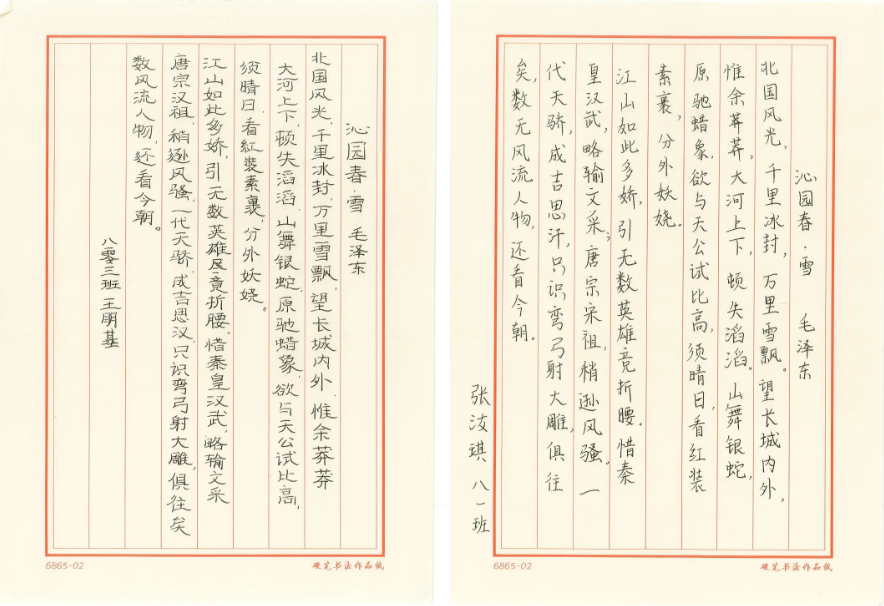 沁园春·雪 毛泽东
北国风光,千里冰封,万里雪飘,望长城内外,惟余莽莽
大河上下,顿失滔滔,山舞银蛇,原驰蜡象,欲与天公试比高,
须晴日,看红装素裹,分外妖娆。
江山如此多娇,引无数英雄尽竟折腰,惜秦皇汉武,略输文采
唐宗汉祖,稍逊风骚,一代天骄,成吉思汉,只识弯弓射大雕,俱往矣
数风流人物,还看今朝。
八零三班王朋基
6865-02
硬笔书法作品纸
沁园春·雪 毛泽东
北国风光,千里冰封,万里雪飘。望长城内外,
惟余莽莽,大河上下,顿失滔滔。山舞银蛇,
原驰蜡象,欲与天公试比高,须晴日,看红装
素裹,分外妖娆。
江山如此多娇,引无数英雄竞折腰.惜秦
皇汉武,略输文采;唐宗宋祖,稍逊风骚。一
代天骄,成吉思汗,只识弯弓射大雕,俱往
矣,数无风流人物,还看今朝.
张汝琪 八一班
6865-02
硬笔书法作品纸